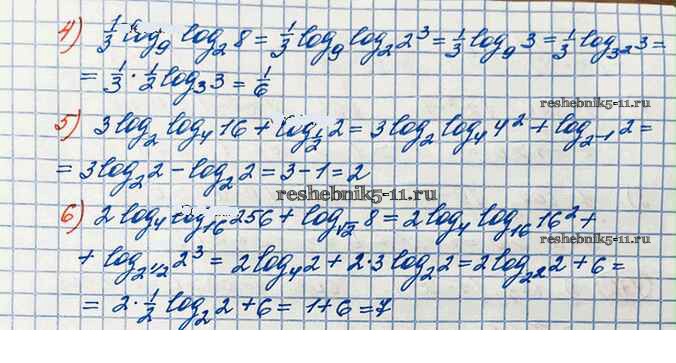 4) 1/3 log₉ log₂ 8 = 1/3 log₉ log₂ 2³ = 1/3 log₉ 3 = 1/3 log₃₂ 3 =
= 1/3 · 1/2 log₃ 3 = 1/6
reshebnik5-11.ru
5) 3 log₂ log₄ 16 + log_{1/2} 2 = 3 log₂ log₄ 4² + log_{2⁻¹} 2 =
= 3 log₂ 2 - log₂ 2 = 3 - 1 = 2
reshebnik5-11.ru
6) 2 log₄ log₁₆ 256 + log_{√2} 8 = 2 log₄ log₁₆ 16² +
+ log_{2^{1/2}} 2³ = 2 log₄ 2 + 2·3 log₂ 2 = 2 log_{2²} 2 + 6 =
= 2 · 1/2 log₂ 2 + 6 = 1 + 6 = 7
reshebnik5-11.ru